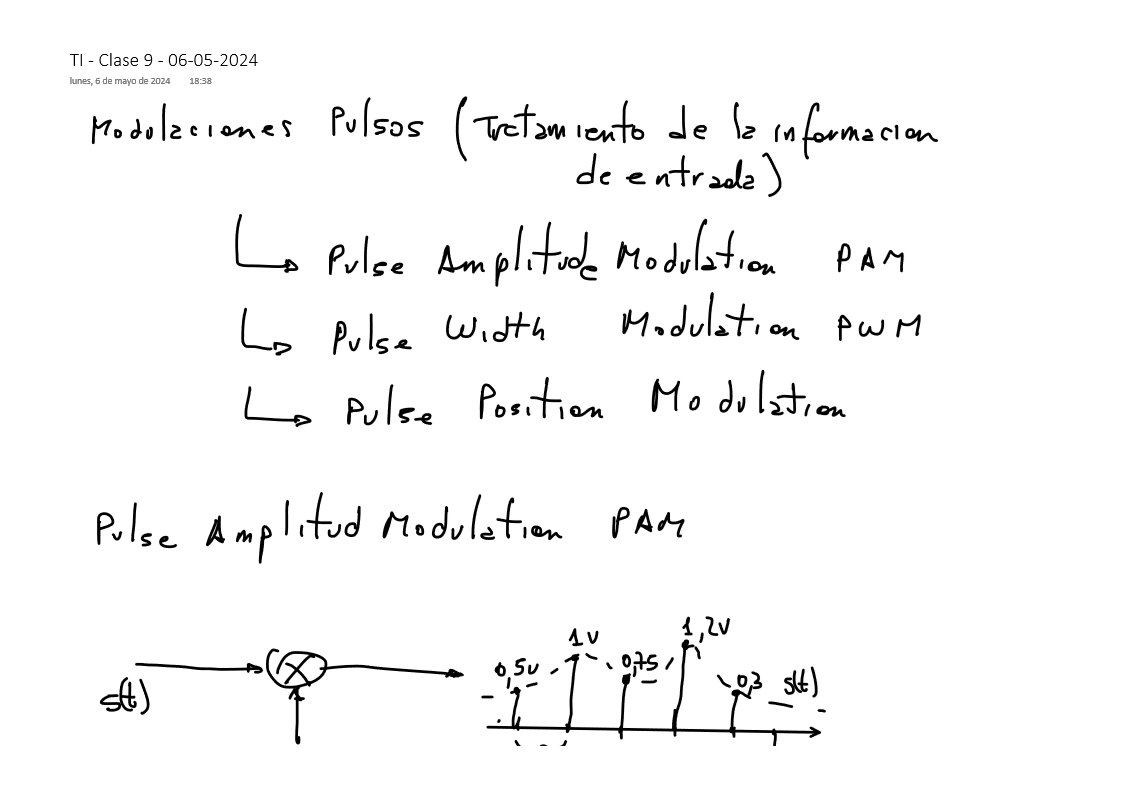 TI - Clase 9 - 06-05-2024
lunes, 6 de mayo de 2024 18:38
Modulaciones Pulsos (Tratamiento de la informacion
de entrada)
Pulse Amplitude Modulation PAM
Pulse Width Modulation PWM
Pulse Position Modulation
Pulse Amplitud Modulation PAM
s(t)
0,5v 1v 0,75 1,2v 0,3 s(t)